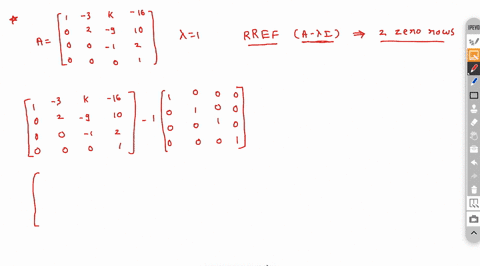 * A = [ 1 -3 k -16
0 2 -9 10
0 0 -1 2
0 0 0 1 ] λ=1 RREF (A-λI) ⇒ 2 zero rows
[ 1 -3 k -16
0 2 -9 10
0 0 -1 2
0 0 0 1 ] - 1 [ 1 0 0 0
0 1 0 0
0 0 1 0
0 0 0 1 ]
[